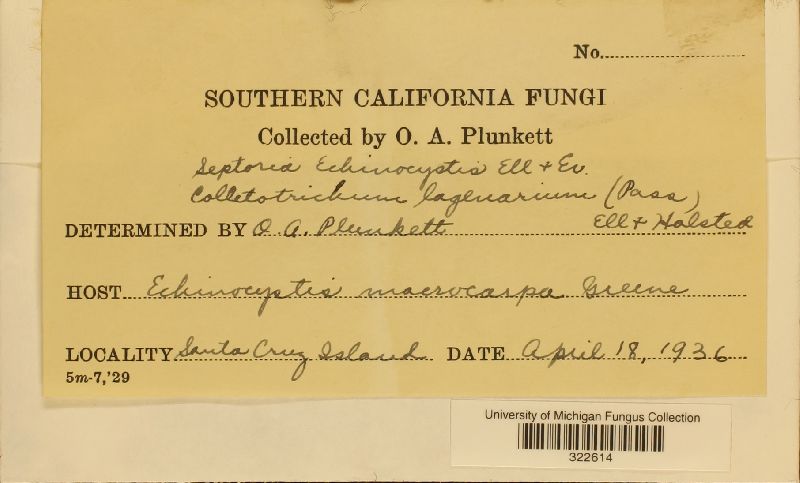 No.
SOUTHERN CALIFORNIA FUNGI
Collected by O. A. Plunkett
Septoria Echinocystis Ell + Ev.
Colletotrichum lagenarium (Pass)
Ell + Halsted
DETERMINED BY O. A. Plunkett
HOST Echinocystis macrocarpa Greene
LOCALITY Santa Cruz Island DATE April 18, 1936
5m-7,'29
University of Michigan Fungus Collection
322614